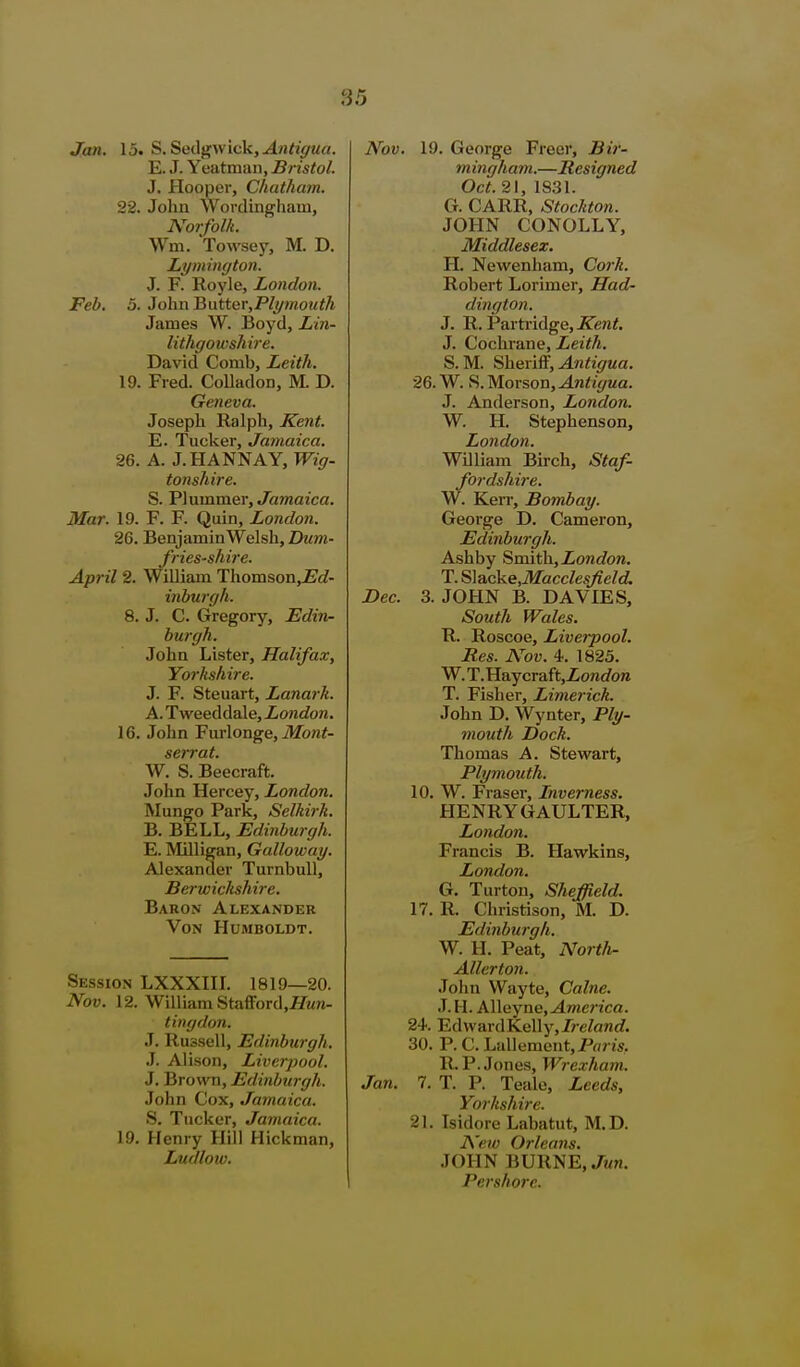 35
Jan. 15. S. Sedgwick, Antigua.
E. J. Yeatman, Bristol.
J. Hooper, Chatham.
22. John Wordingham,
Norfolk.
Wm. Towsey, M. D.
Lymington.
J. F. Royle, London.
Feb. 5. John Butter, Plymouth
James W. Boyd, Lin-
lithgowshire.
David Comb, Leith.
19. Fred. Colladon, M. D.
Geneva.
Joseph Ralph, Kent.
E. Tucker, Jamaica.
26. A. J. HANNAY, Wig-
tonshire.
S. Plummer, Jamaica.
Mar. 19. F. F. Quin, London.
26. Benjamin Welsh, Dum-
fries-shire.
April 2. William Thomson, Ed-
inburgh.
8. J. C. Gregory, Edin-
burgh.
John Lister, Halifax,
Yorkshire.
J. F. Steuart, Lanark.
A. Tweeddale, London.
16. John Furlonge, Mont-
serrat.
W. S. Beecraft.
John Hercey, London.
Mungo Park, Selkirk.
B. BELL, Edinburgh.
E. Milligan, Galloway.
Alexander Turnbull,
Berwickshire.
BARON ALEXANDER
VON HUMBOLDT.
SESSION LXXXIII. 1819—20.
Nov. 12. William Stafford, Hun-
tingdon.
J. Russell, Edinburgh.
J. Alison, Liverpool.
J. Brown, Edinburgh.
John Cox, Jamaica.
S. Tucker, Jamaica.
19. Henry Hill Hickman,
Ludlow.
Nov. 19. George Freer, Bir-
mingham.—Resigned
Oct. 21, 1831.
G. CARR, Stockton.
JOHN CONOLLY,
Middlesex.
H. Newenham, Cork.
Robert Lorimer, Had-
dington.
J. R. Partridge, Kent.
J. Cochrane, Leith.
S. M. Sheriff, Antigua.
26. W. S. Morson, Antigua.
J. Anderson, London.
W. H. Stephenson,
London.
William Birch, Staf-
fordshire.
W. Kerr, Bombay.
George D. Cameron,
Edinburgh.
Ashby Smith, London.
T. Slacke, Macclesfield.
Dec. 3. JOHN B. DAVIES,
South Wales.
R. Roscoe, Liverpool.
Res. Nov. 4. 1825.
W. T. Haycraft, London
T. Fisher, Limerick.
John D. Wynter, Ply-
mouth Dock.
Thomas A. Stewart,
Plymouth.
10. W. Fraser, Inverness.
HENRY GAULTER,
London.
Francis B. Hawkins,
London.
G. Turton, Sheffield.
17. R. Christison, M. D.
Edinburgh.
W. H. Peat, North-
Allerton.
John Wayte, Calne.
J. H. Alleyne, America.
24. Edward Kelly, Ireland.
30. P. C. Lallement, Paris.
R. P. Jones, Wrexham.
Jan. 7. T. P. Teale, Leeds,
Yorkshire.
21. Isidore Labatut, M. D.
New Orleans.
JOHN BURNE, Jun.
Pershore.